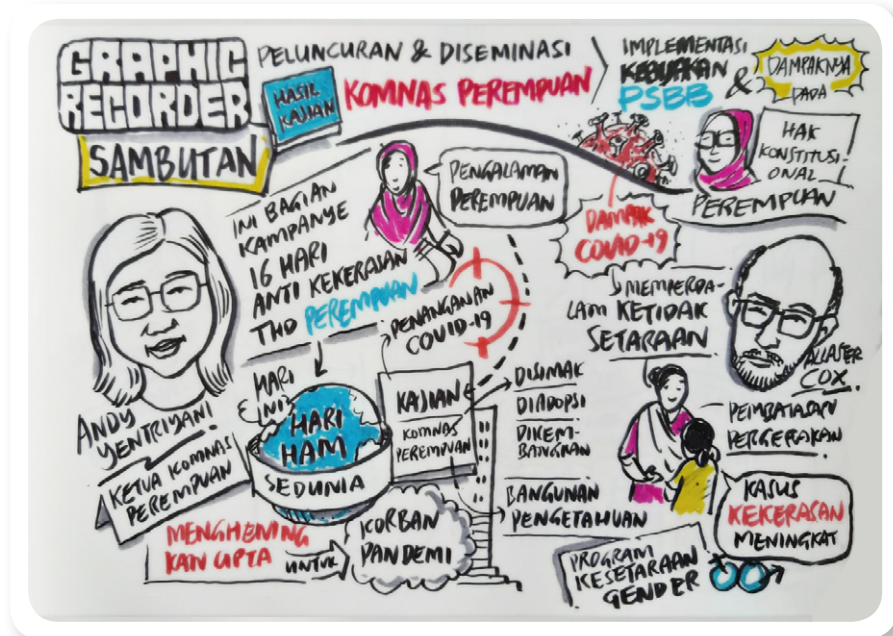 GRAPHIC
RECORDER
SAMBUTAN
PELUNCURAN & DISEMINASI
HASIL
KAJIAN
KOMNAS PEREMPUAN
IMPLEMENTASI
KEBIJAKAN
PSBB &
DAMPAKNYA
PADA
HAK
KONSTITUSI-
ONAL
PEREMPUAN
INI BAGIAN
KAMPANYE
16 HARI
ANTI KEKERASAN
THD PEREMPUAN
PENGALAMAN
PEREMPUAN
PENANGANAN
COVID-19
DAMPAK
COVID-19
MEMPERDA-
LAM KETIDAK
SETARAAN
ALLASTER
COX.
ANDY
YENTRIYANI
KETUA KOMNAS
PEREMPUAN
HARI
INI
HARI
HAM
SEDUNIA
KAJIAN
KOMNAS
PEREMPUAN
DISIMAK
DIADOPSI
DIKEM-
BANGKAN
BANGUNAN
PENGETAHUAN
MENGHENING
KAN CIPTA
UNTUK
KORBAN
PANDEMI
PEMBATASAN
PERGERAKAN
KASUS
KEKERASAN
MENINGKAT
PROGRAM
KESETARAAN
GENDER